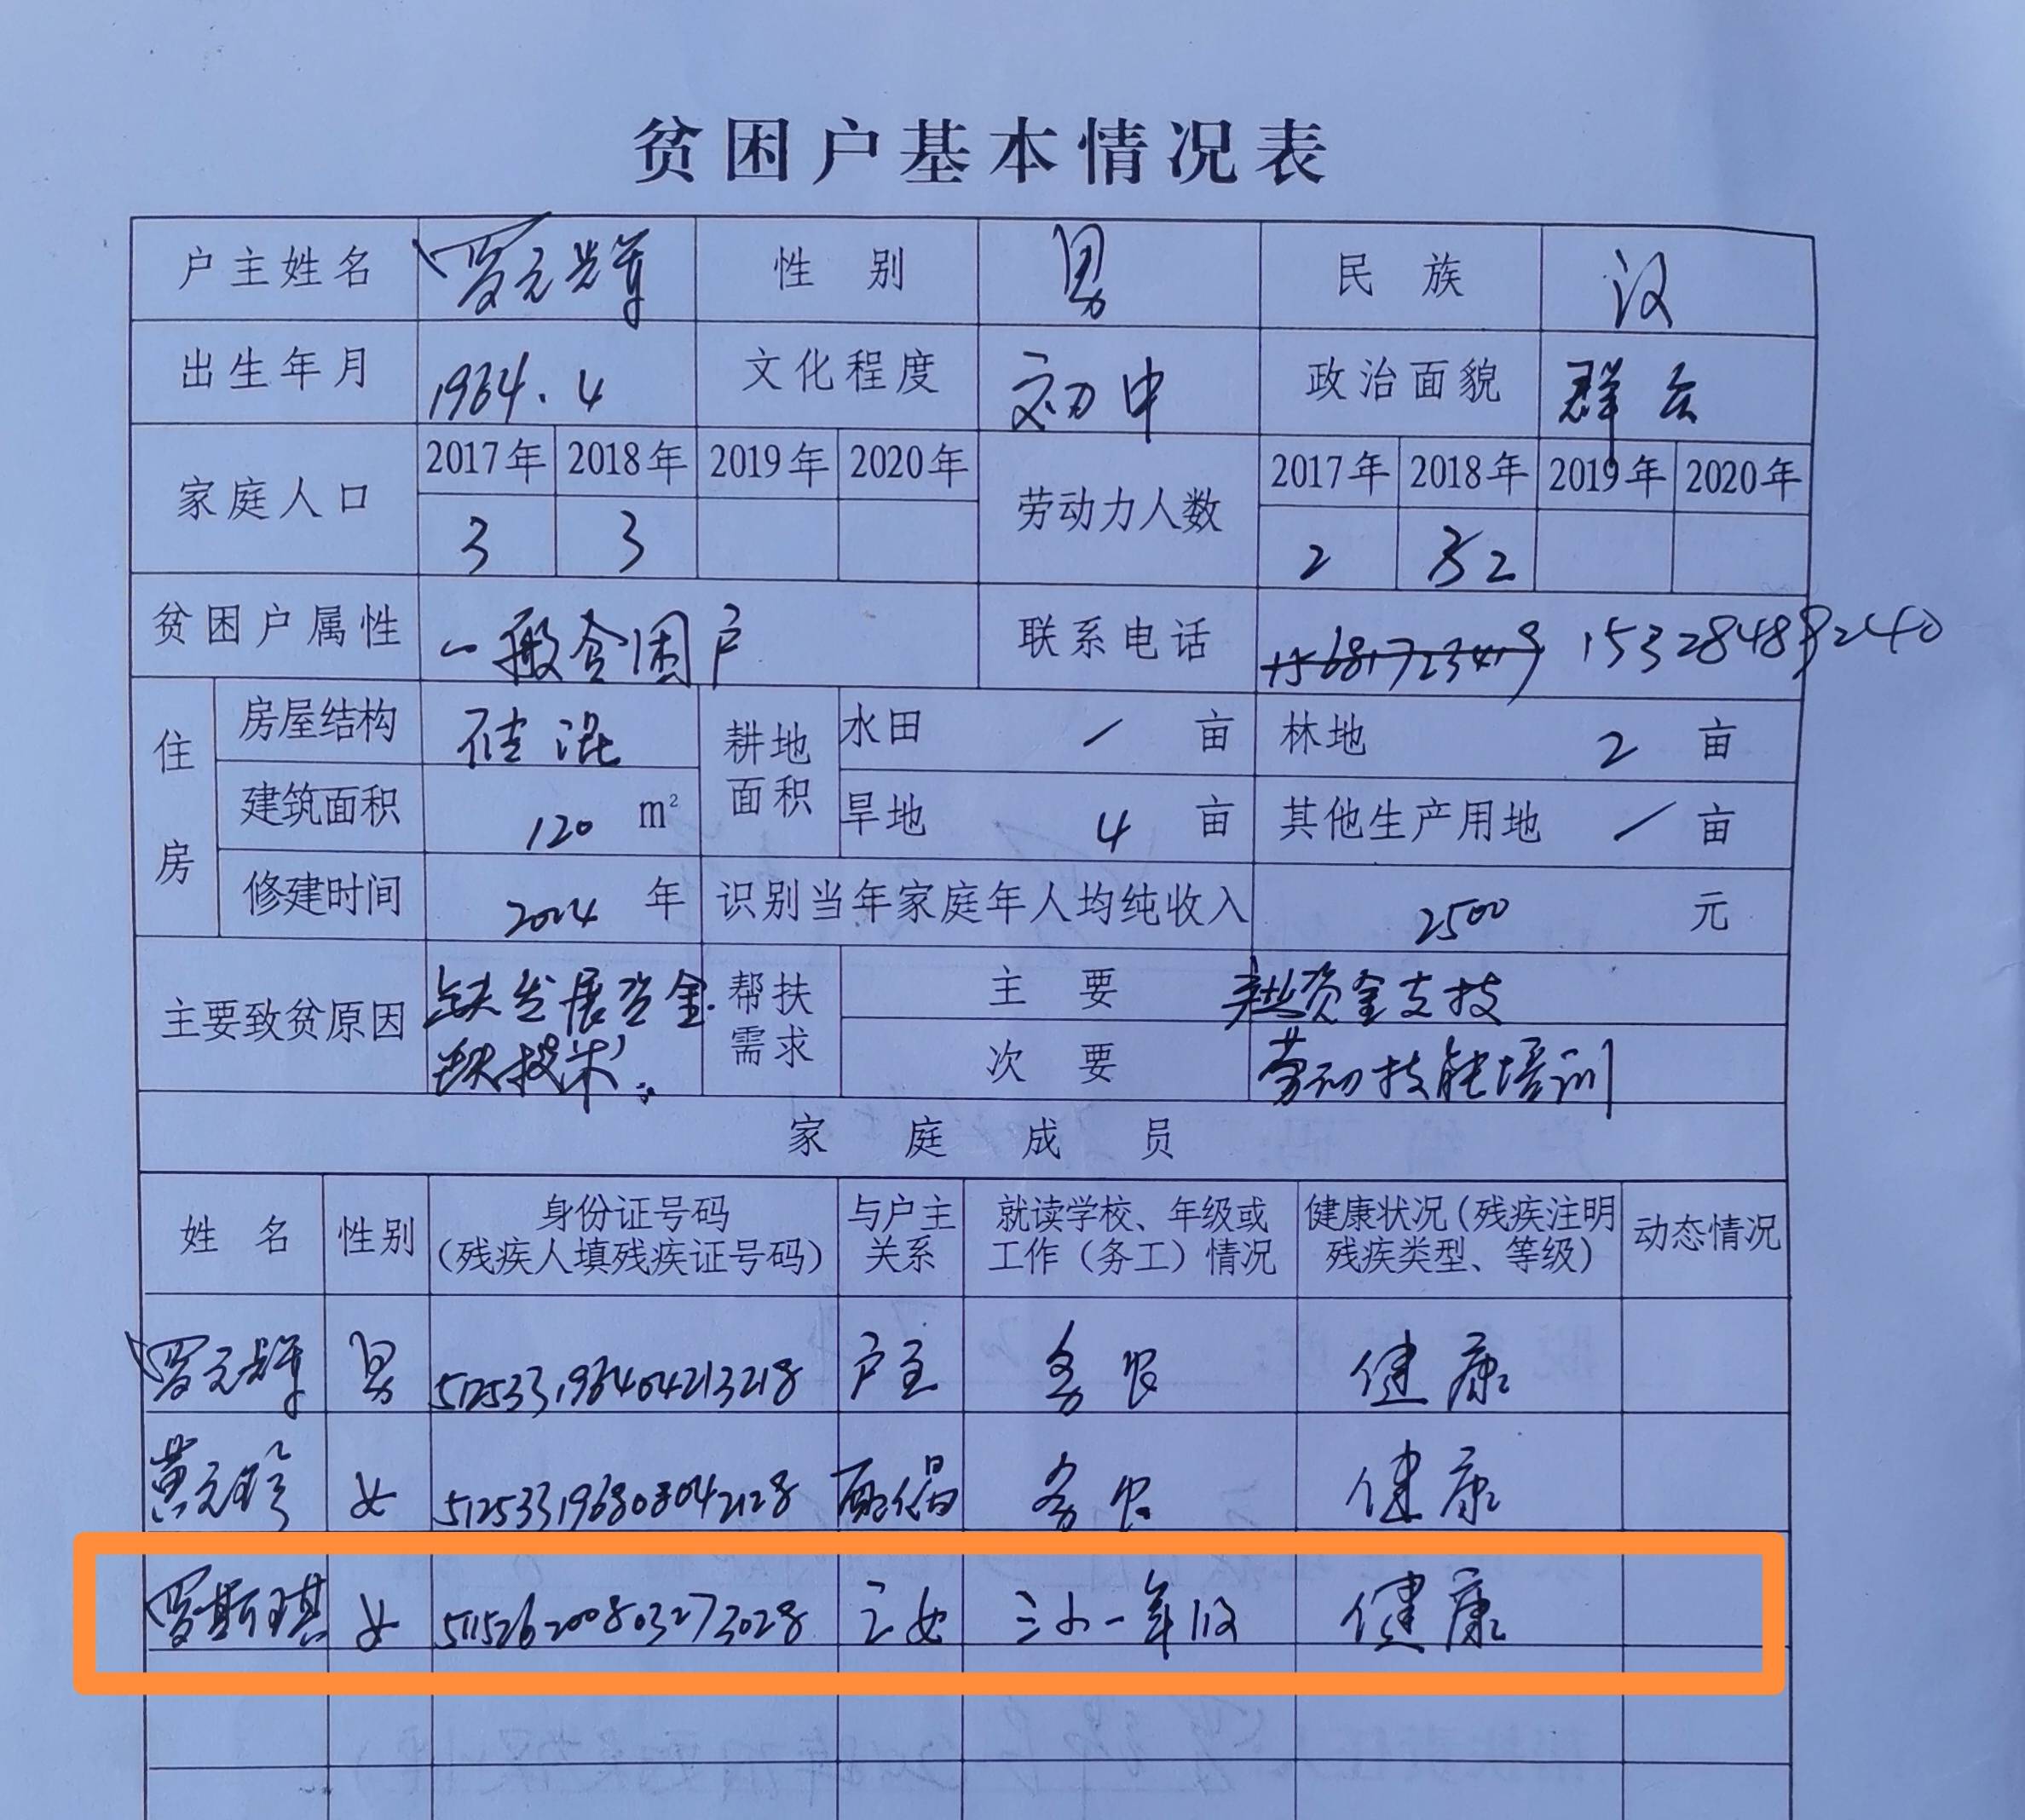 贫困户基本情况表
户主姓名 罗元辉 性别 男 民族 汉
出生年月 1964.4 文化程度 初中 政治面貌 群众
家庭人口 2017年 2018年 2019年 2020年 劳动力人数 2017年 2018年 2019年 2020年
3 3 2 2
贫困户属性 一般贫困户 联系电话 15681723419 15328489240
住房 房屋结构 砼混 耕地面积 水田 / 亩 林地 2 亩
建筑面积 120 m² 旱地 4 亩 其他生产用地 / 亩
修建时间 2004 年 识别当年家庭年人均纯收入 2500 元
主要致贫原因 缺发展资金 缺技术 帮扶需求 主要 资金支技
次要 劳动技能培训
家庭成员
姓名 性别 身份证号码（残疾人填残疾证号码） 与户主关系 就读学校、年级或工作（务工）情况 健康状况（残疾注明残疾类型、等级） 动态情况
罗元辉 男 512533196404213218 户主 务农 健康
黄元珍 女 512533196808042128 配偶 务农 健康
罗斯琪 女 511526200803273028 之女 三小一年级 健康